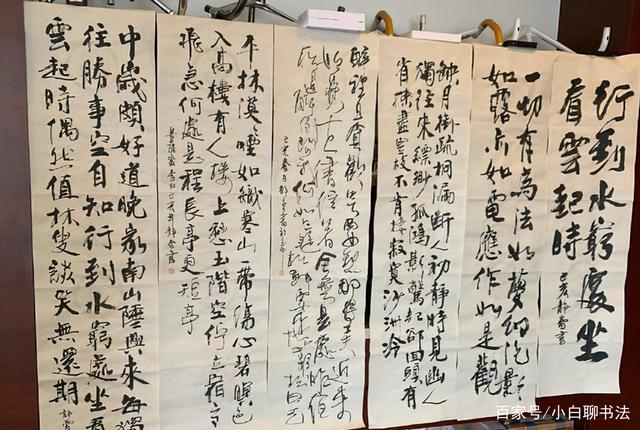 行到水窮處坐
看雲起時
己亥靜雲書
一切有為法如夢幻泡影
如露亦如電應作如是觀
缺月掛疏桐漏斷人初靜時見幽人
獨往來縹緲孤鴻影驚起卻回頭有
省揀盡寒枝不肯棲寂寞沙洲冷
醉裡且貪歡笑要愁那得工夫近來
始覺古人書信著全無是處昨夜
平林漠漠煙如織寒山一帶傷心碧暝色
入高樓有人樓上愁玉階空佇立宿鳥
飛急何處是歸程長亭更短亭
菩薩蠻李白己亥靜雲書
中歲頗好道晚家南山陲興來每獨
往勝事空自知行到水窮處坐看
雲起時偶然值林叟談笑無還期
百家号/小白聊书法